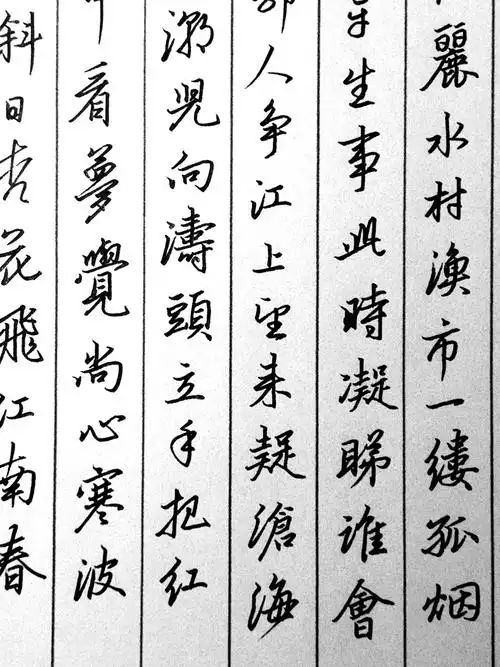 麗水村漁市一縷孤烟
生事此時凝睇誰會
人争江上望来疑滄海
潮兒向濤頭立手把红
看夢覺尚心寒波
斜日杏花飛江南春